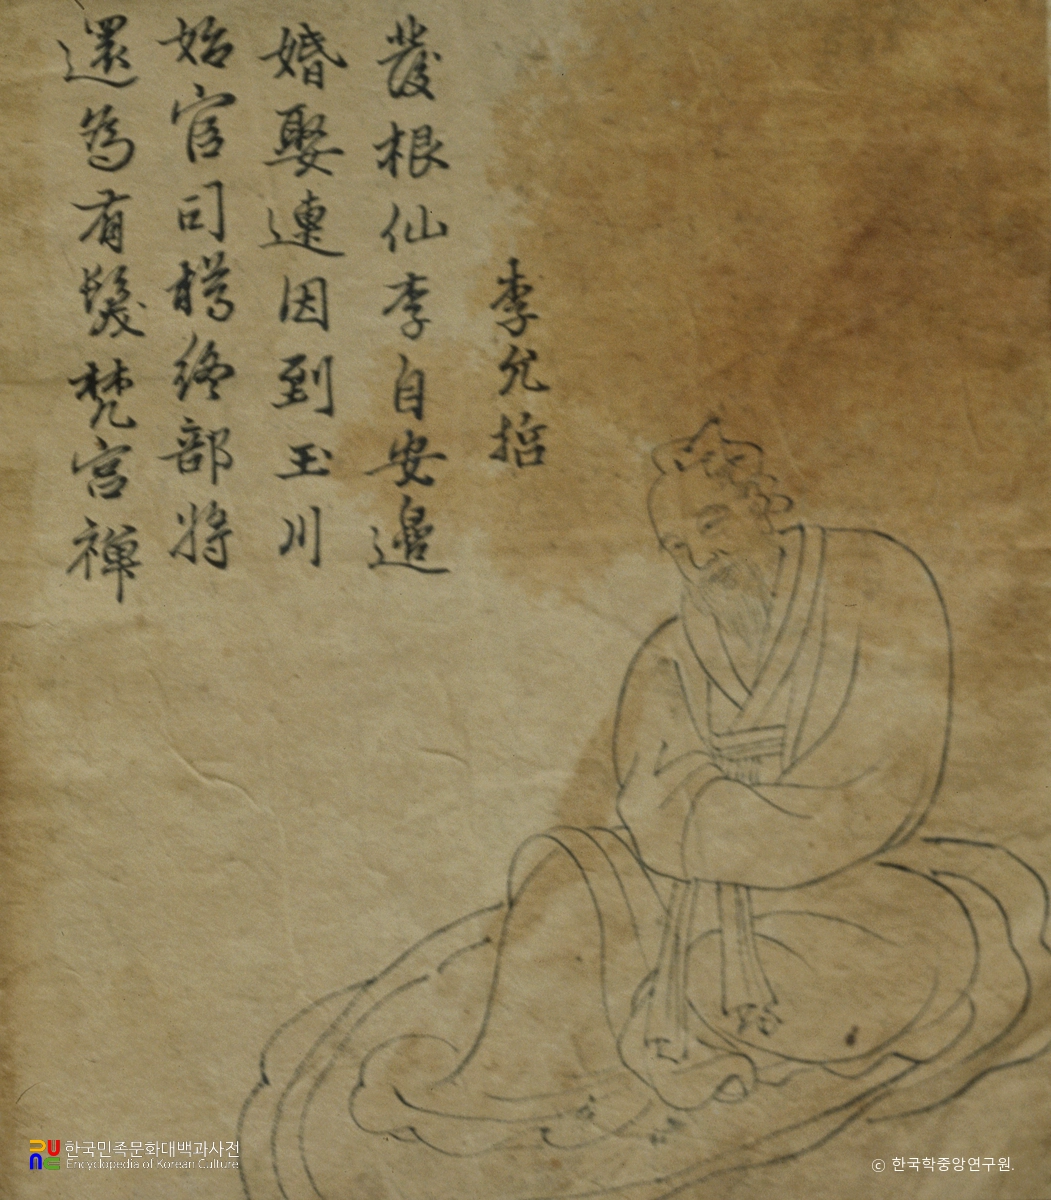 李允哲
發根仙李自安邊
婚娶連因到玉川
始官司樽終部將
還為有髮梵宮禪
한국민족문화대백과사전
Encyclopedia of Korean Culture
ⓒ 한국학중앙연구원.